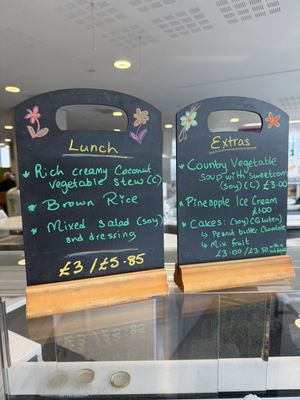 Lunch
* Rich creamy Coconut
vegetable Stew (C)
* Brown Rice
* Mixed Salad (soy)
and dressing
£3 / £5.85
Extras
* Country Vegetable
Soup with Sweetcorn
(soy) (C) £3.00
* Pineapple Ice Cream
£1.00
* Cakes: (soy) (Gluten)
Peanut butter Chocolate
Mix fruit
£3.00 / £3.50